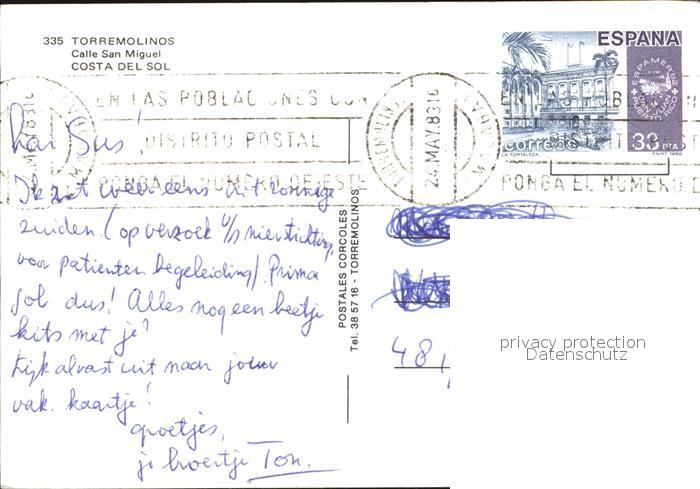 335 TORREMOLINOS
Calle San Miguel
COSTA DEL SOL
ESPAÑA
ESPAMER 82
correos
LA FORTALEZA
33 PTA
EN LAS POBLACIONES CON
DISTRITO POSTAL
PONGA EL NUMERO DE ESTE
24.MAY.83 16
PONGA EL NUMERO D
Hai Sus!
Ik zit weer eens in 't zonnige
zuiden (op verzoek v/d nierstichting,
voor patienten begeleiding) Prima
job dus! Alles nog een beetje
kits met je?
Kijk alvast uit naar jouw
vak. kaartje!
groetjes,
je broertje Ton.
POSTALES CORCOLES
Tel. 38 57 16 - TORREMOLINOS
48,
privacy protection
Datenschutz